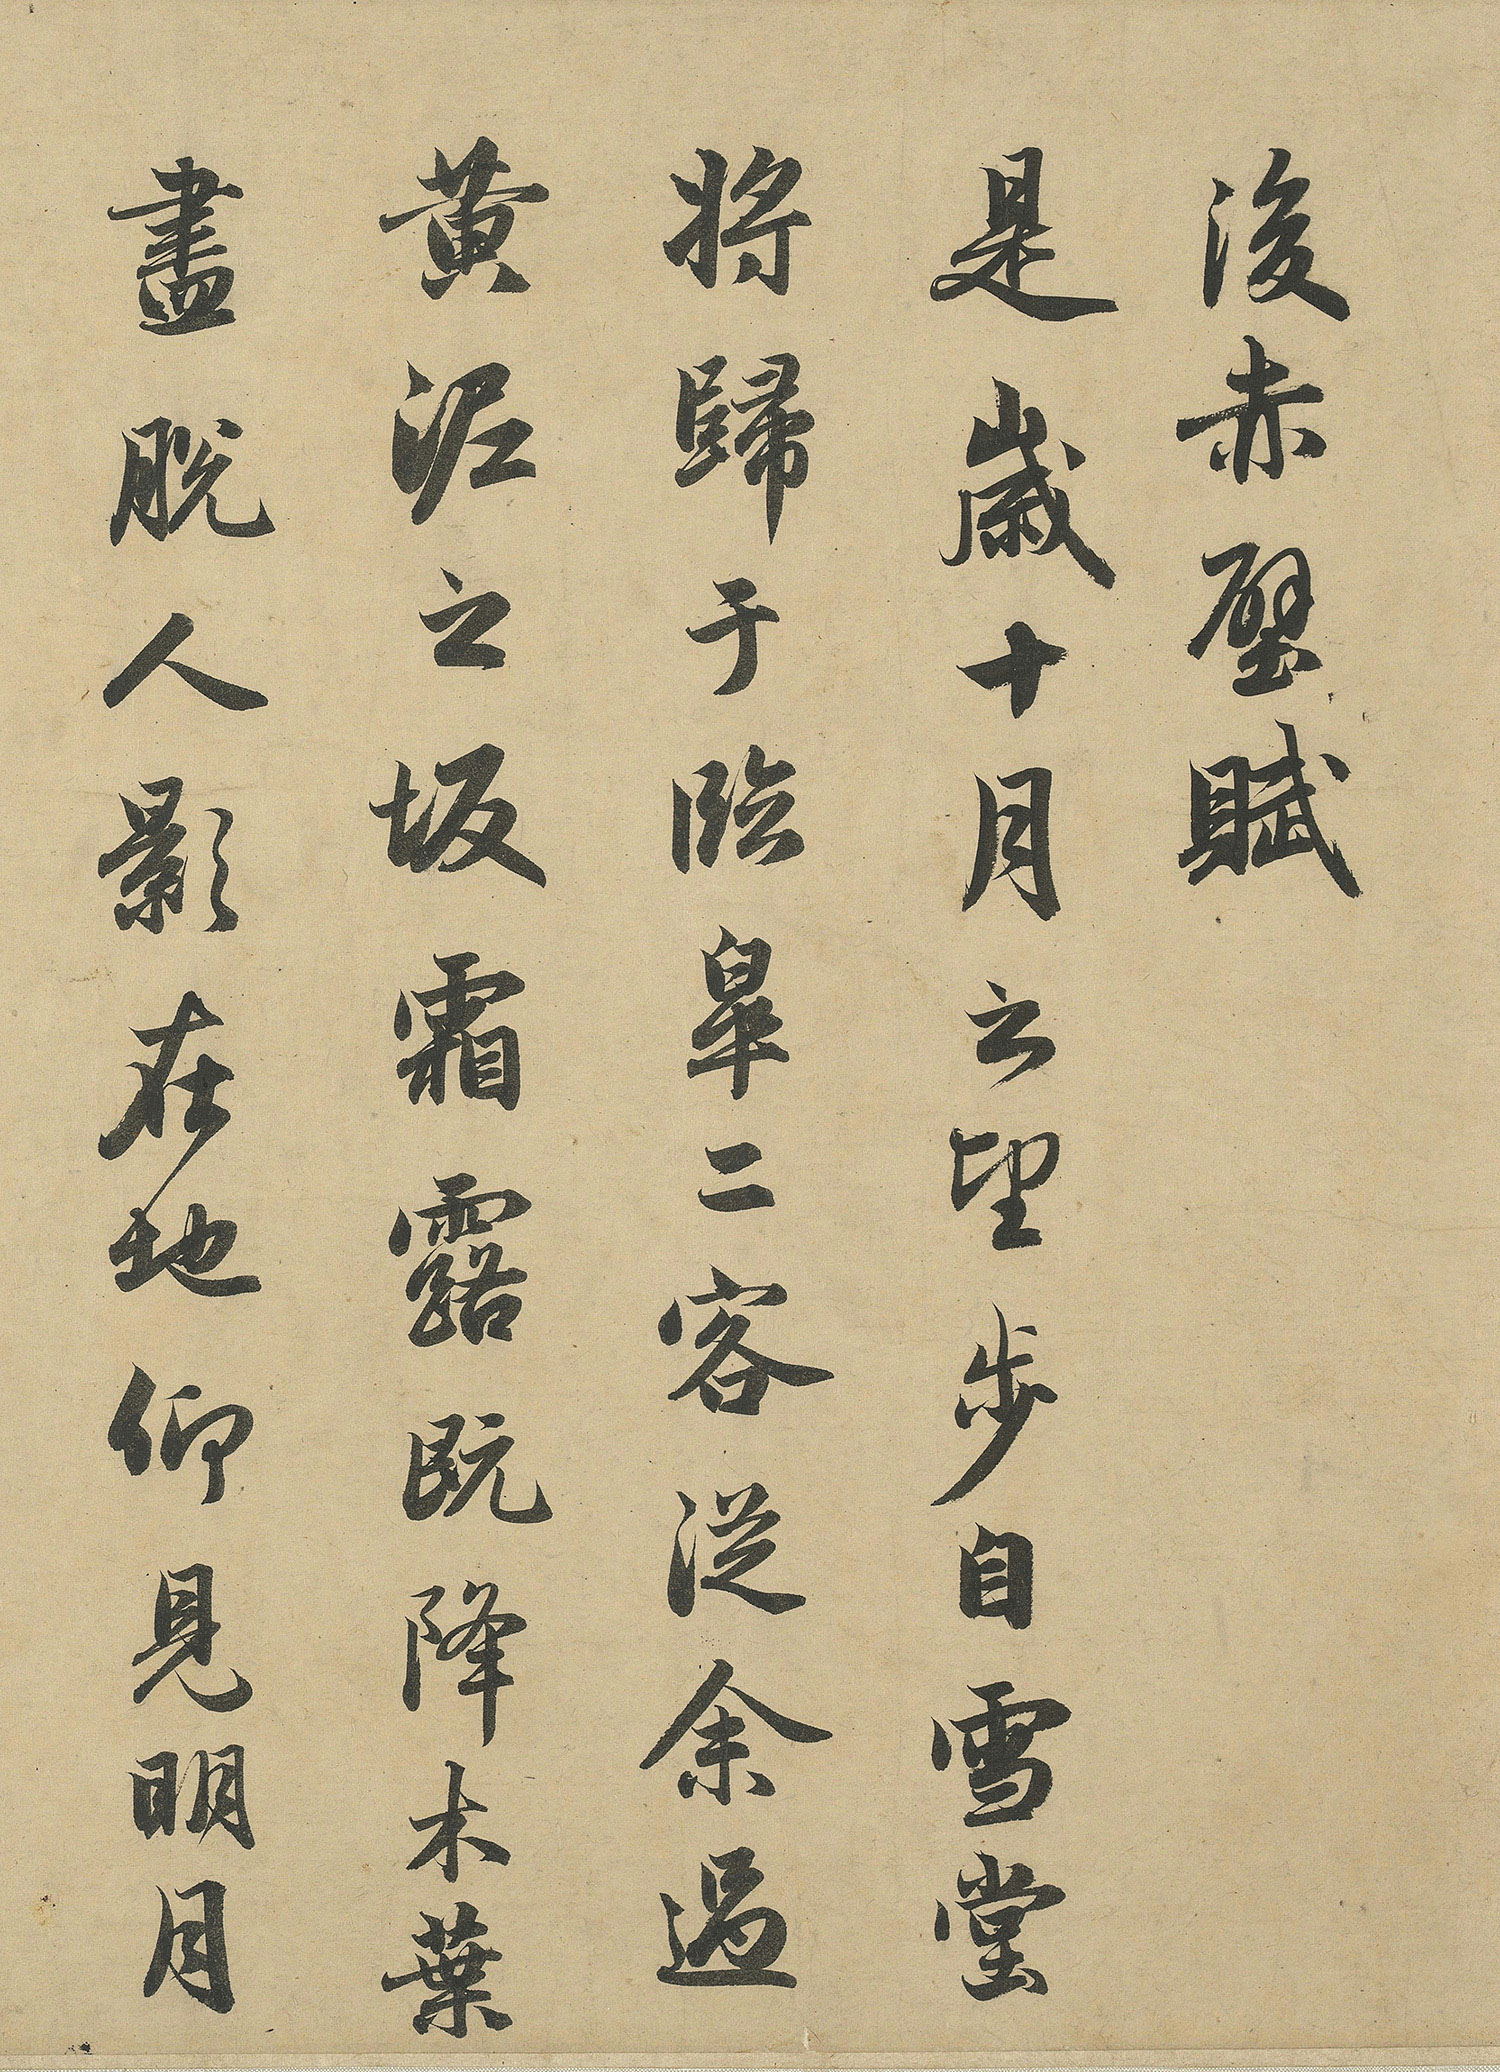 後赤壁賦
是歲十月之望步自雪堂
將歸于臨皐二客從余過
黄泥之坂霜露既降木葉
盡脫人影在地仰見明月